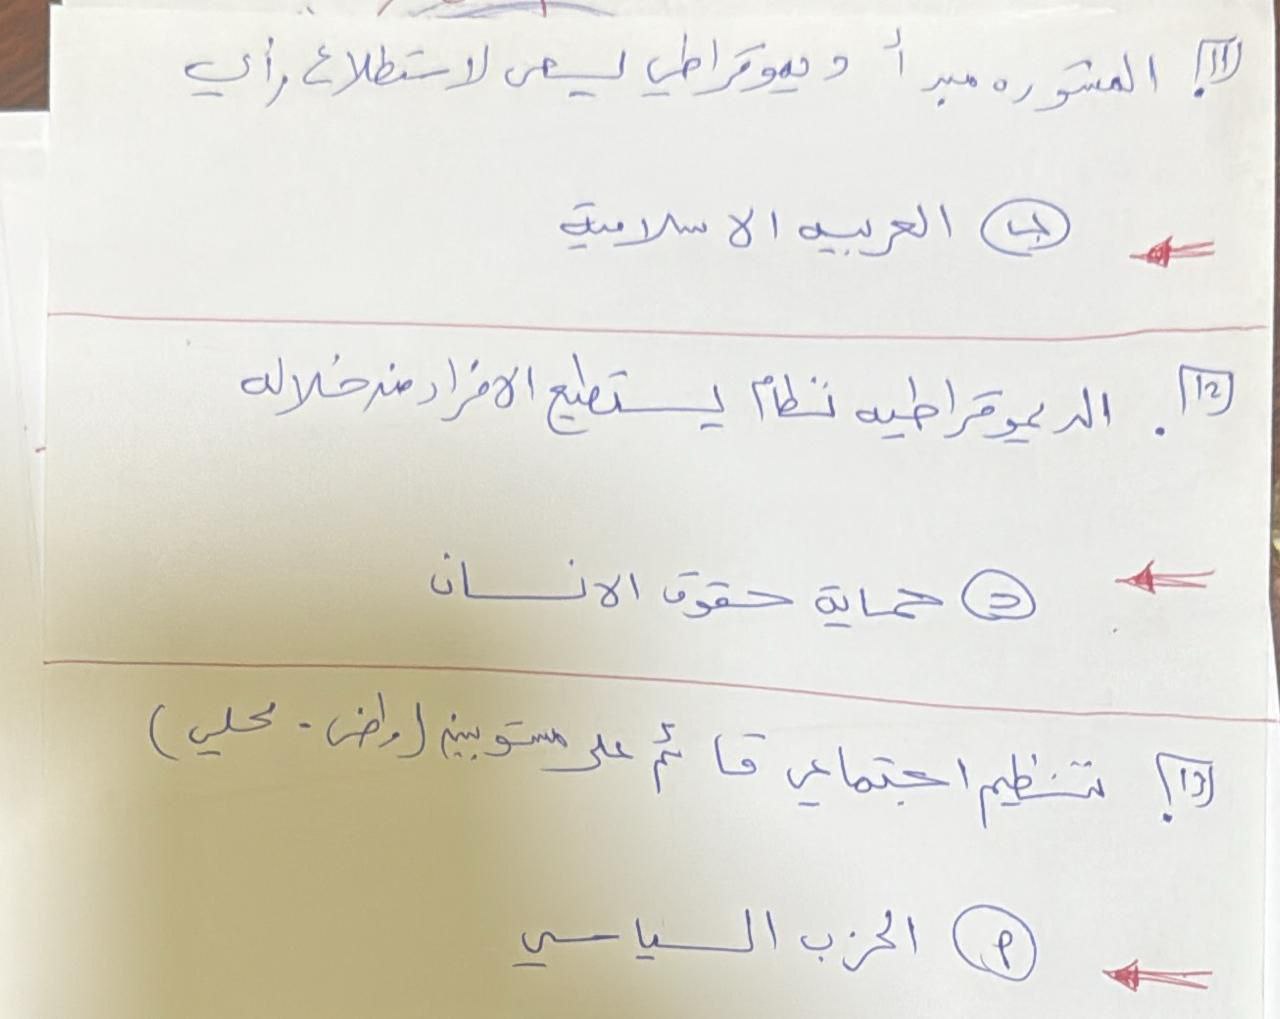 11. المشوره مبدأ ديموقراطي يسعى لاستطلاع رأي
ب العربيه الاسلامية
12. الديموقراطيه نظام يستطيع الافراد من خلاله
د حماية حقوق الانسان
13. تنظيم اجتماعي قائم على مستويين (وطني - محلي)
أ الحزب السياسي